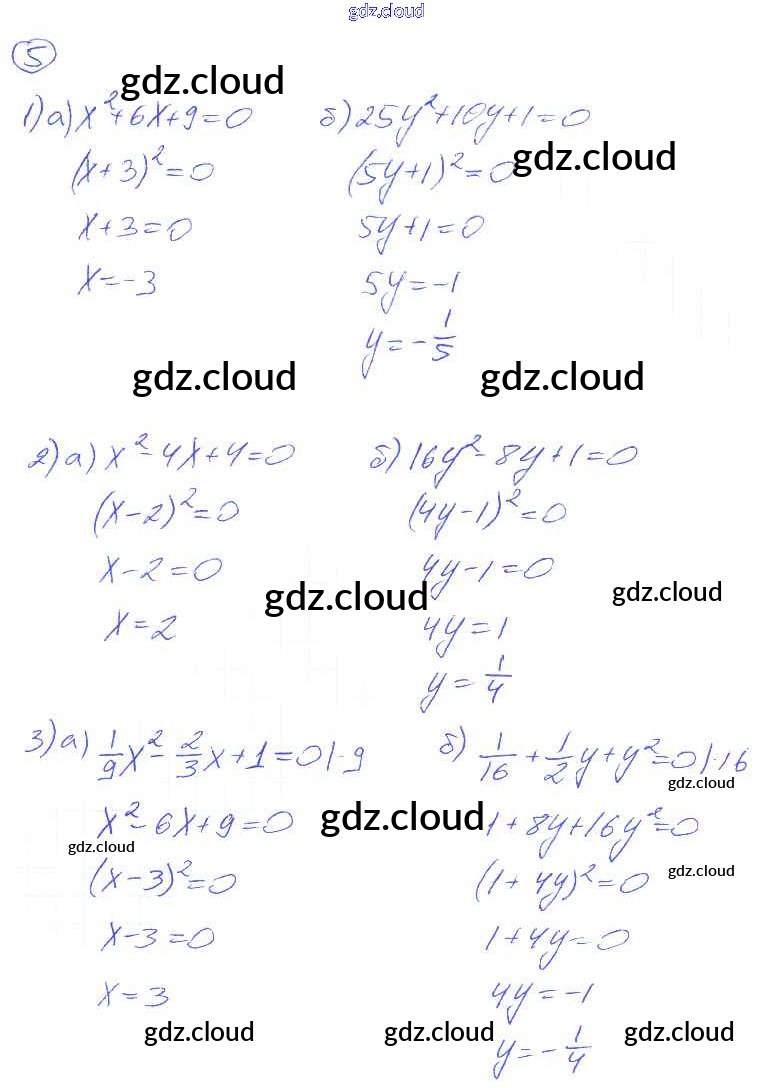 gdz.cloud
5
gdz.cloud
1) а) x²+6x+9=0 б) 25y²+10y+1=0
gdz.cloud
(x+3)²=0 (5y+1)²=0
x+3=0 5y+1=0
x=-3 5y=-1
y=-1/5
gdz.cloud gdz.cloud
2) а) x²-4x+4=0 б) 16y²-8y+1=0
(x-2)²=0 (4y-1)²=0
x-2=0 4y-1=0
gdz.cloud gdz.cloud
x=2 4y=1
y=1/4
3) а) 1/9x²-2/3x+1=0|·9 б) 1/16+1/2y+y²=0|·16
gdz.cloud
x²-6x+9=0 gdz.cloud 1+8y+16y²=0
gdz.cloud
(x-3)²=0 (1+4y)²=0
gdz.cloud
x-3=0 1+4y=0
x=3 4y=-1
gdz.cloud gdz.cloud gdz.cloud
y=-1/4